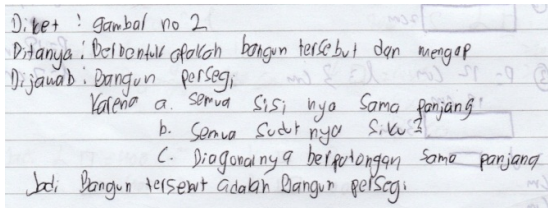 Diket : gambar no 2
Ditanya : Berbentuk apakah bangun tersebut dan mengap
Dijawab : Bangun persegi
Karena a. semua sisi nya sama panjang
b. Semua sudut nya siku2
c. Diagonalnya berpotongan sama panjang
Jadi Bangun tersebut adalah Bangun persegi